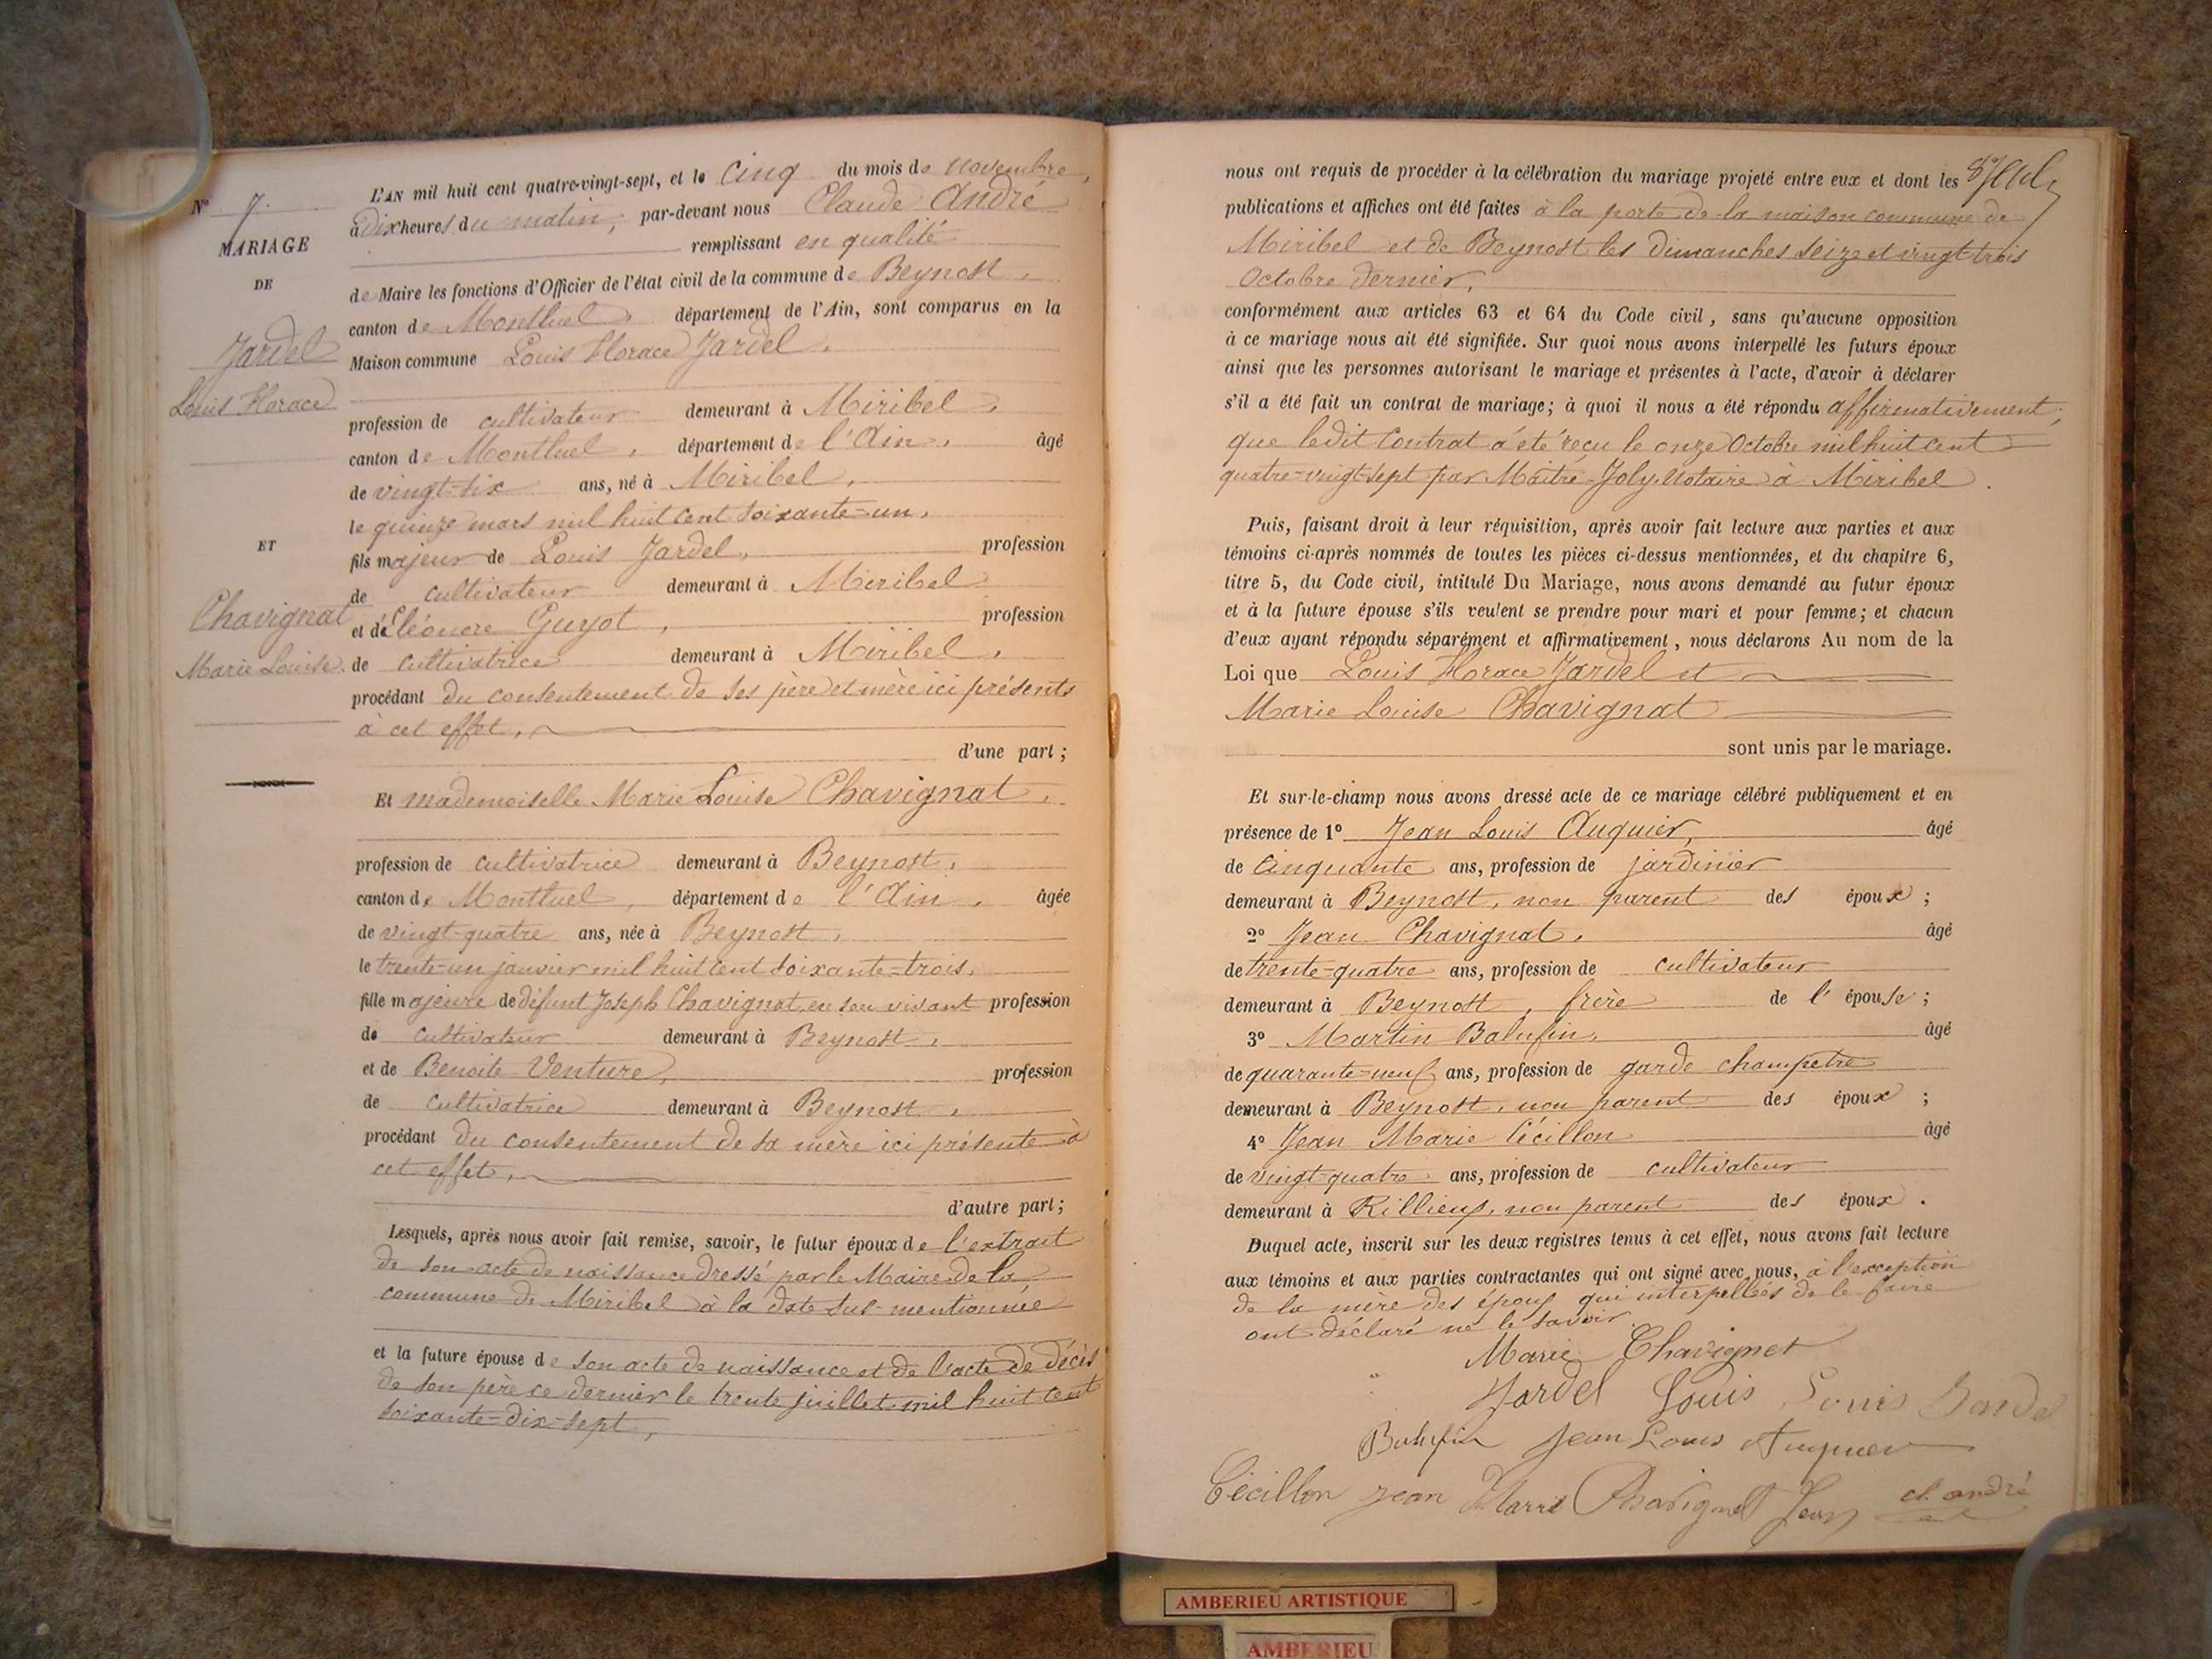 N° 7.
MARIAGE
DE
Jardel
Louis Horace
ET
Chavignat
Marie Louise.
L'AN mil huit cent quatre-vingt-sept, et le cinq du mois de novembre,
à dix heures du matin, par-devant nous Claude André
remplissant en qualité
de Maire les fonctions d'Officier de l'état civil de la commune de Beynost,
canton de Montluel, département de l'Ain, sont comparus en la
Maison commune Louis Horace Jardel,
profession de cultivateur demeurant à Miribel,
canton de Montluel, département de l'Ain, âgé
de vingt-six ans, né à Miribel,
le quinze mars mil huit cent soixante-un,
fils majeur de Louis Jardel, profession
de cultivateur demeurant à Miribel
et d'Eléonore Guyot, profession
de cultivatrice demeurant à Miribel,
procédant du consentement de ses père et mère ici présents
à cet effet,
d'une part;
Et mademoiselle Marie Louise Chavignat,
profession de cultivatrice demeurant à Beynost,
canton de Montluel, département de l'Ain, âgée
de vingt-quatre ans, née à Beynost,
le trente-un janvier mil huit cent soixante-trois,
fille majeure de défunt Joseph Chavignat, en son vivant profession
de cultivateur demeurant à Beynost,
et de Benoite Venture, profession
de cultivatrice demeurant à Beynost,
procédant du consentement de sa mère ici présente à
cet effet,
d'autre part;
Lesquels, après nous avoir fait remise, savoir, le futur époux de l'extrait
de son acte de naissance dressé par le Maire de la
commune de Miribel à la date sus-mentionnée
et la future épouse de son acte de naissance et de l'acte de décès
de son père ce dernier le trente juillet mil huit cent
soixante-dix-sept,
nous ont requis de procéder à la célébration du mariage projeté entre eux et dont les
publications et affiches ont été faites à la porte de la maison commune de
Miribel et de Beynost les dimanches seize et vingt-trois
Octobre dernier,
conformément aux articles 63 et 64 du Code civil, sans qu'aucune opposition
à ce mariage nous ait été signifiée. Sur quoi nous avons interpellé les futurs époux
ainsi que les personnes autorisant le mariage et présentes à l'acte, d'avoir à déclarer
s'il a été fait un contrat de mariage; à quoi il nous a été répondu affirmativement,
que ledit contrat a été reçu le onze Octobre mil huit cent
quatre-vingt-sept par Maître Joly, Notaire à Miribel.
Puis, faisant droit à leur réquisition, après avoir fait lecture aux parties et aux
témoins ci-après nommés de toutes les pièces ci-dessus mentionnées, et du chapitre 6,
titre 5, du Code civil, intitulé Du Mariage, nous avons demandé au futur époux
et à la future épouse s'ils veulent se prendre pour mari et pour femme; et chacun
d'eux ayant répondu séparément et affirmativement, nous déclarons Au nom de la
Loi que Louis Horace Jardel et
Marie Louise Chavignat
sont unis par le mariage.
Et sur-le-champ nous avons dressé acte de ce mariage célébré publiquement et en
présence de 1° Jean Louis Auquier, âgé
de cinquante ans, profession de jardinier
demeurant à Beynost, non parent des époux;
2° Jean Chavignat, âgé
de trente-quatre ans, profession de cultivateur
demeurant à Beynost, frère de l'épouse;
3° Martin Balufin, âgé
de quarante-neuf ans, profession de garde champetre
demeurant à Beynost, non parent des époux;
4° Jean Marie Cécillon âgé
de vingt-quatre ans, profession de cultivateur
demeurant à Rillieux, non parent des époux.
Duquel acte, inscrit sur les deux registres tenus à cet effet, nous avons fait lecture
aux témoins et aux parties contractantes qui ont signé avec nous, à l'exception
de la mère des époux qui interpellées de le faire
ont déclaré ne le savoir.
Marie Chavignat
Jardel Louis Louis Jardel
Balufin Jean Louis Auquier
Cécillon Jean Marie Chavignat Jean cl. andré
AMBERIEU ARTISTIQUE
AMBERIEU